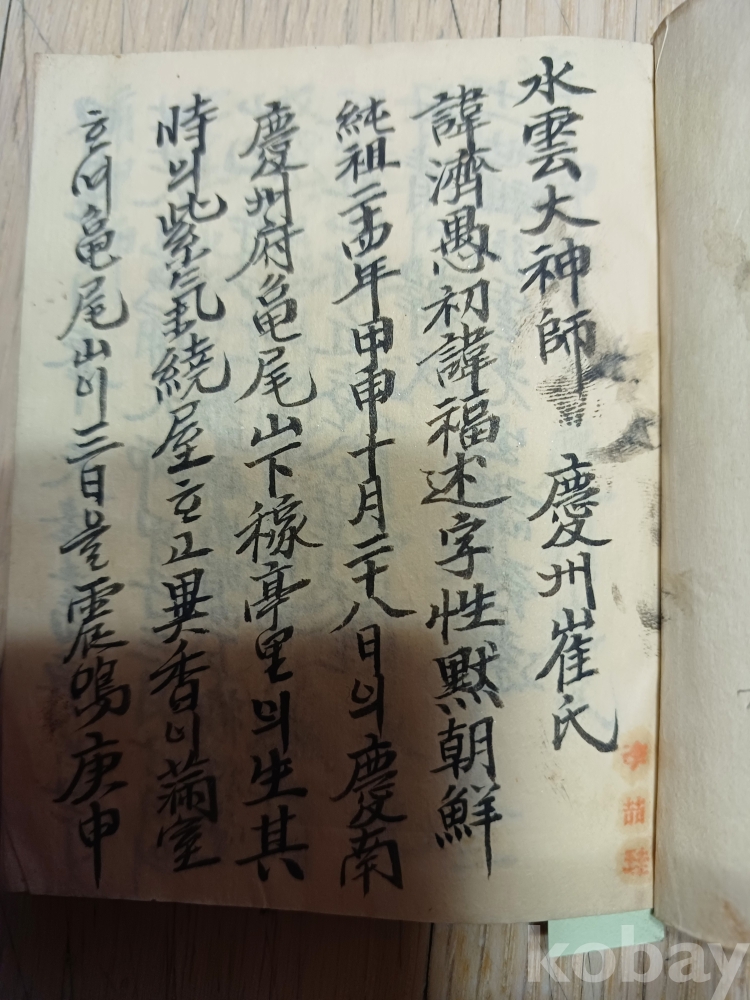 水雲大神師 慶州崔氏
諱濟愚初諱福述字性默朝鮮
純祖二十四年甲申十月二十八日의慶南
慶州府龜尾山下稼亭里의生其
時의紫氣繞屋ᄒᆞ고異香이滿室
ᄒᆞ며龜尾山이三日을震鳴庚申
kobay